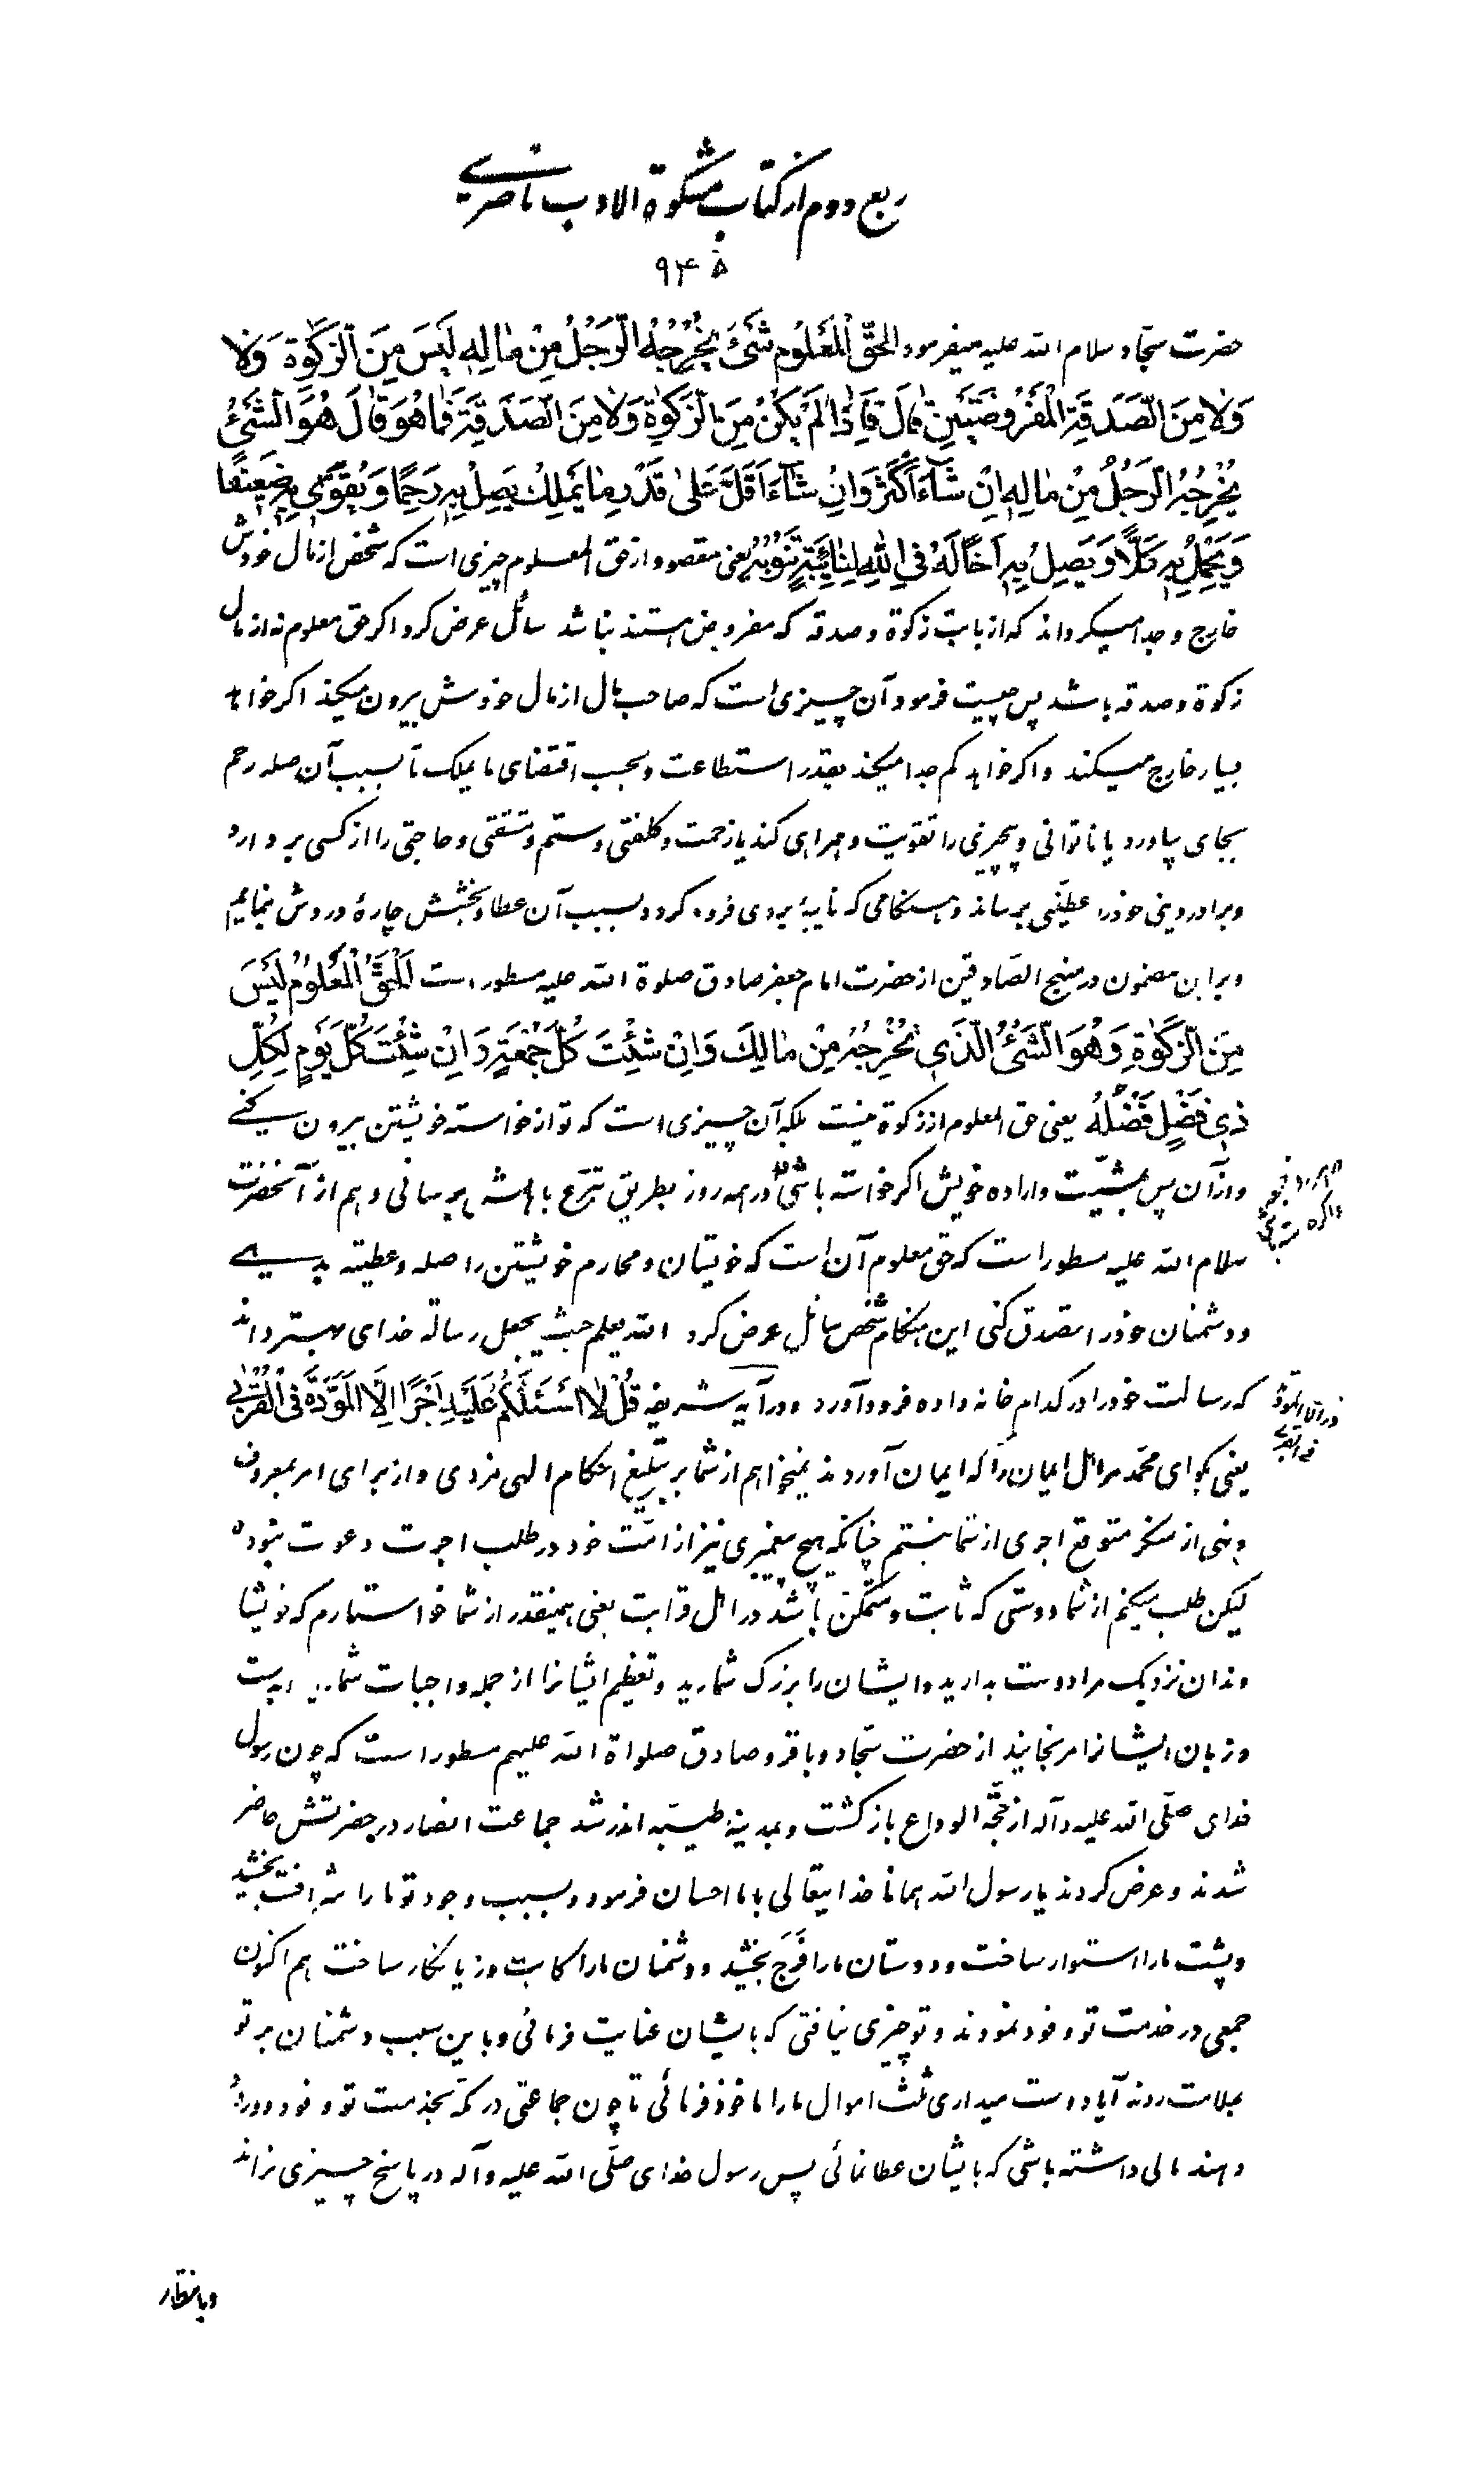 ربع دوم از کتاب مشکوة الادب ناصری
۹۴۵
حضرت سجّاد سلام الله علیه میفرمود اَلْحَقُّ الْمَعْلُومُ شَیْئٌ یُخْرِجُهُ الرَّجُلُ مِنْ مٰالِهِ لَیْسَ مِنَ الزَّکٰوةِ وَلٰا
وَلٰا مِنَ الصَّدَقَةِ الْمَفْرُوضَتَیْنِ قٰالَ فَاِذٰا لَمْ یَکُنْ مِنَ الزَّکٰوةِ وَلٰا مِنَ الصَّدَقَةِ فَمٰا هُوَ قٰالَ هُوَ الشَّیْئُ
یُخْرِجُهُ الرَّجُلُ مِنْ مٰالِهِ اِنْ شٰآءَ اَکْثَرَ وَاِنْ شٰآءَ اَقَلَّ عَلیٰ قَدْرِ مٰا یَمْلِکُ یَصِلُ بِهِ رَحِمًا وَ یُقَوّی بِهِ ضَعیفًا
وَ یَحْمِلُ بِهِ کَلًّا وَ یَصِلُ بِهِ اَخًا لَهُ فِی اللهِ لِنٰائِبَةٍ تَنُوبُهُ یعنی مقصود از حق المعلوم چیزی است که شخص از مال خودش
خارج و جدا میکرداند که از بابت زکوة و صدقه که مفروض هستند نباشد سائل عرض کرد اکر حق معلوم نه از مال
زکوة و صدقه باشد پس چیست فرمود آن چیزی است که صاحب مال از مال خودش بیرون میکند اکر خواهد
بسیار خارج میکند و اکر خواهد کم جدا میکند بقدر استطاعت و بحسب اقتضای ما یملک تا بسبب آن صله رحم
بجای بیاورد یا ناتوانی و بیچیزی را تقویت و همراهی کند یا زحمت و کلفتی و ستم و مشقتی و حاجتی را از کسی بردارد
و برادر دینی خود را عطیّتی برساند و هنکامی که نایبهٔ بروی فرود کردد بسبب آن عطا و بخشش چارهٔ دردش نمایم
و براین مضمون در منهج الصّادقین از حضرت امام جعفر صادق صلوة الله علیه مسطور است اَلْحَقُّ الْمَعْلُومُ لَیْسَ
مِنَ الزَّکٰوةِ وَهُوَ الشَّیْئُ الَّذی یُخْرِجُهُ مِنْ مٰالِکَ وَاِنْ شِئْتَ کُلَّ جُمْعَةٍ وَ اِنْ شِئْتَ کُلَّ یَوْمٍ لِکُلِّ
ذِی فَضْلٍ فَضْلُهُ یعنی حق المعلوم از زکوة نیست بلکه آن چیزی است که تو از خواسته خویشتن بیرون کنی
و از آن پس بمشیّت و اراده خویش اکر خواسته باشی در همه روز بطریق تبرّع باهلش برسانی و هم از آنحضرت
سلام الله علیه مسطور است که حق معلوم آن است که خویشان و محارم خویشتن را صله و عطیّه بدهی
و دشمنان خود را تصدق کنی این هنکام شخص سائل عرض کرد الله یعلم حیث یجعل رسالته خدای بهتر داند
که رسالت خود را در کدام خانه واده فرود آورد و در آیه شریفه قُلْ لٰا اَسْئَلُکُمْ عَلَیْهِ اَجْرًا اِلَّا الْمَوَدَّةَ فِی الْقُرْبٰی
یعنی بکو ای محمّد مر اهل ایمان را که ایمان آوردند نمیخواهم از شما بر تبلیغ احکام الهی مزدی و از برای امر بمعروف
و نهی از منکر متوقع اجری از شما نیستم چنانکه هیچ پیغمبری نیز از امّت خود در طلب اجرت دعوت نبوده
لیکن طلب میکنم از شما دوستی که ثابت و متمکن باشد در اهل قرابت یعنی همینقدر از شما خواستارم که خویشا
وندان نزدیک مرا دوست بدارید و ایشان را بزرک شمارید و تعظیم ایشانرا از جمله واجبات شمارید و بدست
و زبان ایشانرا مرنجانید از حضرت سجّاد و باقر و صادق صلواة الله علیهم مسطور است که چون رسول
خدای صلّی الله علیه و آله از حجّة الوداع باز کشت و بمدینهٔ طیّبه اندر شد جماعت انصار در حضرتش حاضر
شدند و عرض کردند یا رسول الله همانا خدایتعالی با ما احسان فرمود و بسبب وجود تو ما را شرافت بخشید
و پشت ما را استوار ساخت و دوستان ما را فَرَج بخشید و دشمنان ما را کابت و زیانکار ساخت هم اکنون
جمعی در خدمت تو وفود نمودند و تو چیزی نیافتی که بایشان عنایت فرمائی و باین سبب دشمنان بر تو
بملامت روند آیا دوست میداری ثلث اموال ما را ماخوذ فرمائی تا چون جماعتی در مکّه بخدمت تو وفود و ورود
دهند مالی داشته باشی که بایشان عطا نمائی پس رسول خدای صلّی الله علیه و آله در پاسخ چیزی نراند
و بانتظار